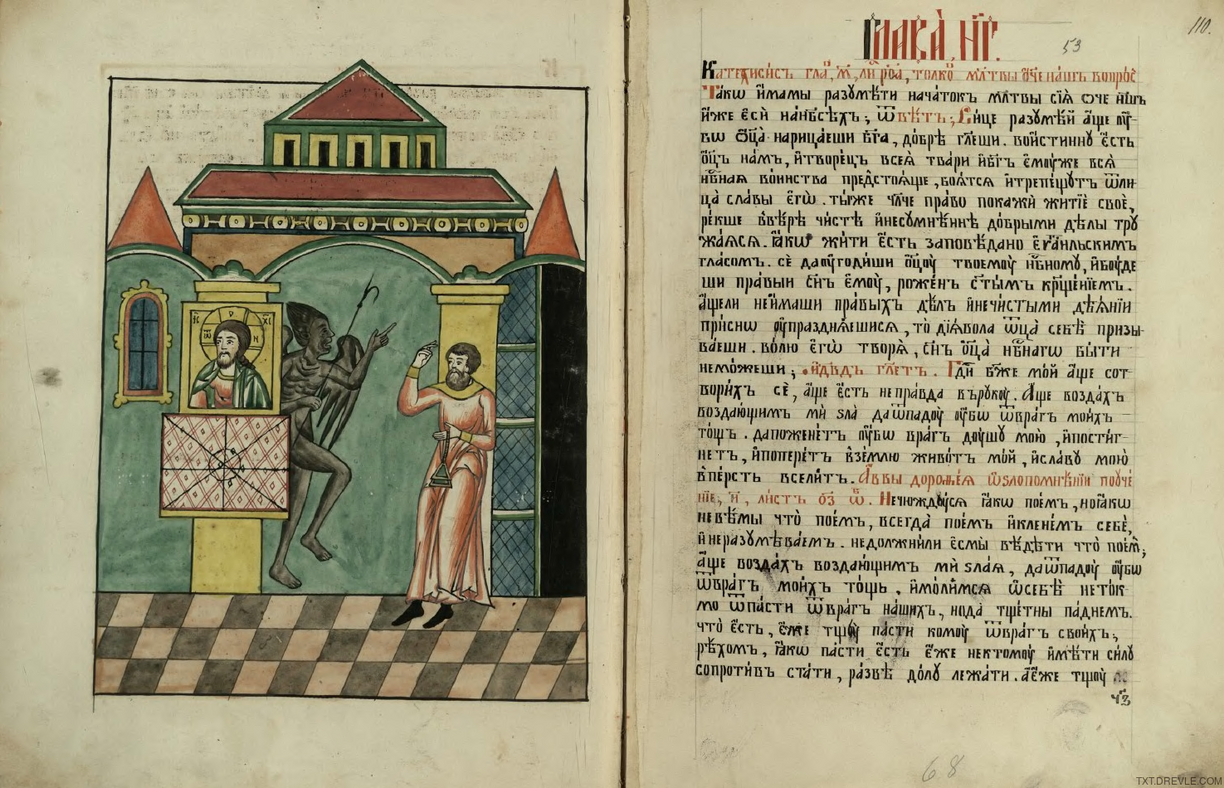 І҃С Х҃С
Глава̀ н҃г.
53
110.
Катехисисъ гла́, м҃, ли́ роа, толко̀ мл҃твы о҆́ч҃е на́шъ вопро́с
Та́кѡ и҆́мамы разꙋмѣ́ти нача́токъ мл҃твы сїѧ̀ ѻ҆ч҃е на́шъ
и҆́же є҆сѝ нанб҃сѣ́хъ; ѿвѣ́тъ; Си́це разꙋмѣ́й а҆́ще пр҇
вѡ ѻ҆ц҃а̀ нарица́еши бг҃а, до́брѣ гл҃еши. вои́стиннꙋ є҆́сть
ѻ҆ц҃ъ на́мъ, и҆творе́цъ всеѧ̀ тва́ри и҆бг҃ъ є҆мꙋ́же всѧ̀
нб҃наѧ во́инства предстоѧ́ще, боѧ́тсѧ и҆трепе́щꙋтъ ѿли
ца̀ сла́вы є҆гѡ̀. ты́же чл҃че пра́во покажѝ житїѐ своѐ,
ре́кше ввѣ́рѣ чи́стѣ и҆несꙋмнѣ́ннѣ до́брыми дѣ́лы трꙋ
жа́ѧсѧ. ꙗ҆́кѡ жи́ти є҆́сть заповѣ́дано є҆ѵа́гльскимъ
гла́сомъ. сѐ даоугоди́ши ѻ҆ц҃ꙋ̀ твоемꙋ̀ нбⷭ҇номꙋ, и҆бꙋ́де
ши пра́вый сн҃ъ є҆мꙋ̀, роже́нъ ст҃ы́мъ крⷭ҇ще́нїемъ.
а҆́щели неи҆́маши пра́выхъ дѣ́лъ и҆нечи́стыми дѣѧ́нїи
при́снѡ оу҆пражнѧ́ешисѧ, то̀ дїѧ́вола ѿца̀ себѣ̀ призы
ва́еши. во́лю є҆гѡ̀ творѧ̀, сн҃ъ ѻ҆ц҃а̀ нбⷭ҇нагѡ бы́ти
немо́жеши; и҆дв҃дъ гл҃етъ. Гдⷭ҇и бж҃е мо́й а҆́ще сот
вори́хъ сѐ, а҆́ще є҆́сть непра́вда врꙋкꙋ̀. А҆́ще возда́хъ
воздаю́щимъ мѝ ѕла̀ даѿпадꙋ̀ оу҆́бѡ ѿвра́гъ мои́хъ
то́щъ. дапожене́тъ оу҆́бѡ вра́гъ дꙋ́шꙋ мою̀, и҆пости́г-
нетъ, и҆попере́тъ взе́млю живо́тъ мо́й, и҆сла́вꙋ мою̀
впе́рсть всели́тъ. А҆́ввы дороѳе́ѧ ѡ҆ѕлопомнѣ́нїи поꙋче́
нїе, и҃, ли́стъ о҃з ѿ. Непонꙋжда́йсѧ ꙗ҆́кѡ пое́мъ, ноꙗ҆́кѡ
невѣ́мы что̀ пое́мъ, всегда̀ пое́мъ и҆клене́мъ себѐ,
и҆неразꙋмѣва́емъ. недолжни́ли є҆смы̀ вѣ́дѣти что̀ пое́мъ;
а҆́ще возда́хъ воздаю́щимъ мѝ ѕла́ѧ, даѿпадꙋ̀ оу҆́бѡ
ѿвра́гъ мои́хъ то́щъ, и҆мо́лимсѧ ѡ҆себѣ̀ нето́к
мо ѿпа́сти ѿвра́гъ на́шихъ, нода тще́тны паде́мъ.
что̀ є҆́сть, є҆́же тщꙋ̀ па́сти комꙋ̀ ѿвра́гъ свои́хъ;
рѣ́хомъ, ꙗ҆́кѡ па́сти є҆́сть є҆́же нектомꙋ̀ и҆мѣ́ти си́лꙋ
сопроти́въ ста́ти, ра́звѣ до́лꙋ лежа́ти. а҆є҆́же тщꙋ̀
68
TXT.DREVLE.COM